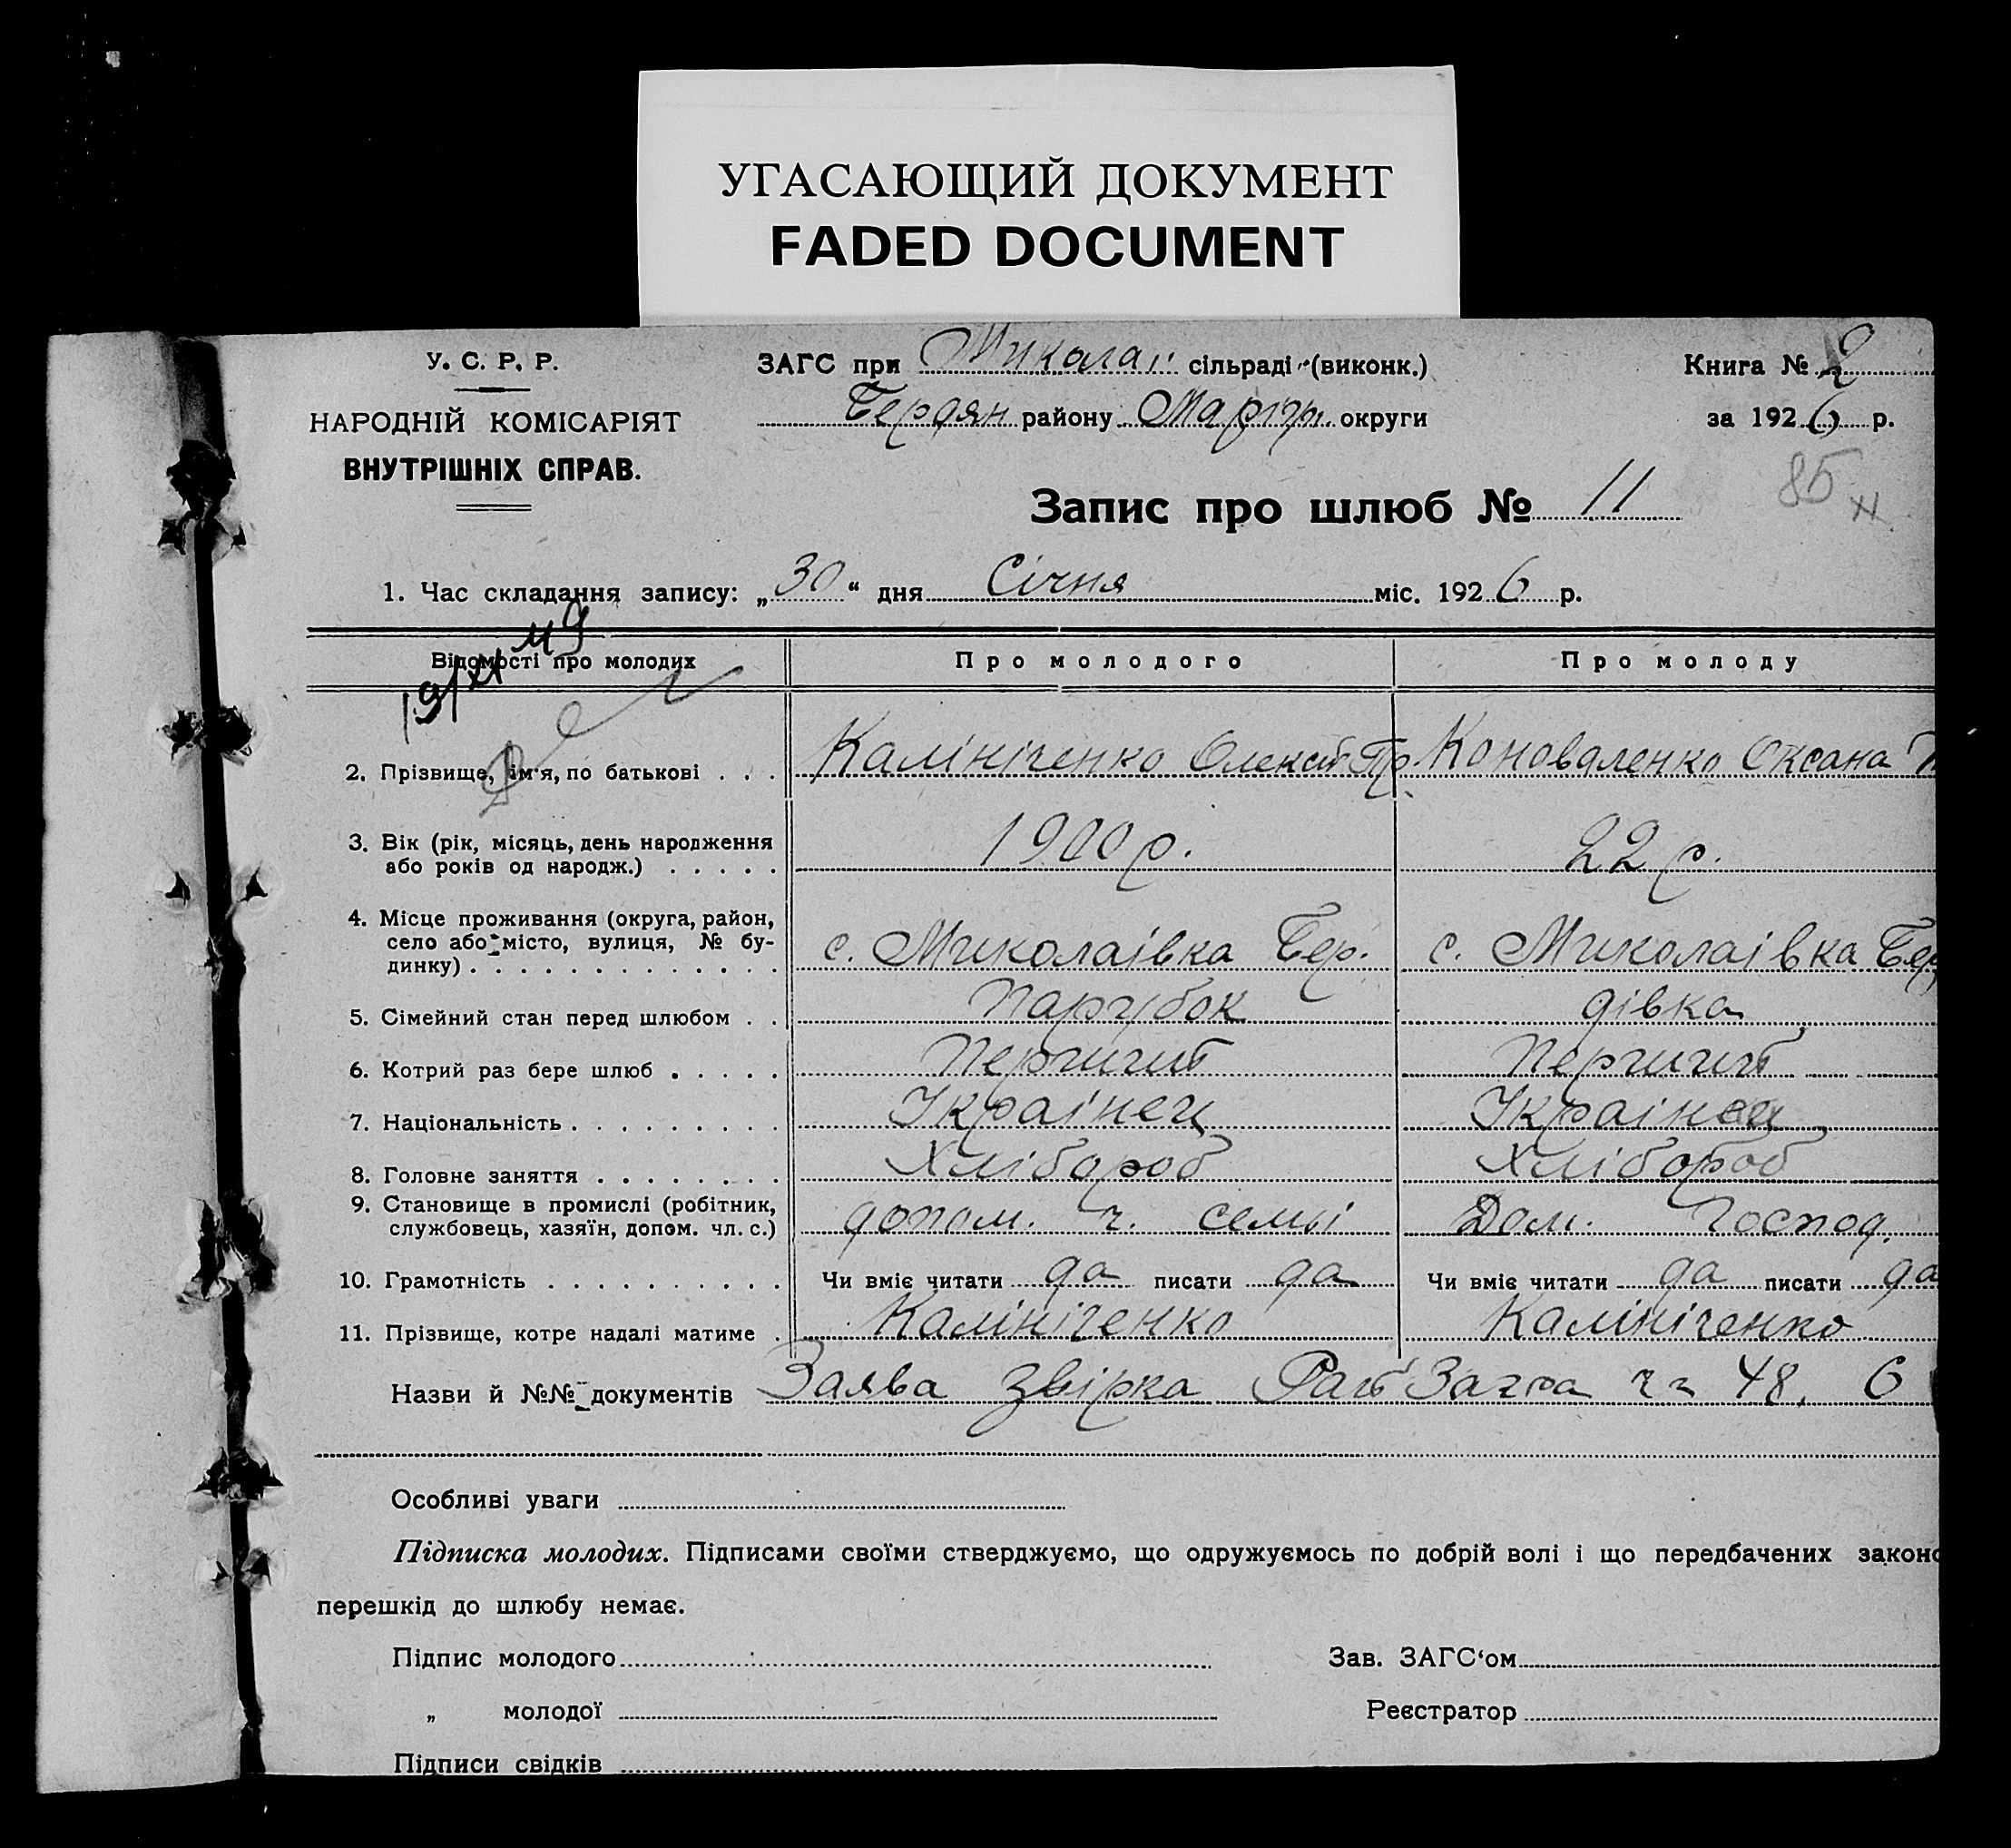 УГАСАЮЩИЙ ДОКУМЕНТ
FADED DOCUMENT
У. С. Р. Р.
НАРОДНІЙ КОМІСАРІЯТ
ВНУТРІШНІХ СПРАВ.
ЗАГС при Миколаї сільраді (виконк.)
Бердян району Маріуп. округи
Книга № 2
за 1926 р.
85
Запис про шлюб № 11
1. Час складання запису: „30“ дня Січня міс. 1926 р.
19/XI
Відомості про молодих Про молодого Про молоду
2. Прізвище, ім'я, по батькові . . . Калініченко Олексій Пр. Коноваленко Оксана
3. Вік (рік, місяць, день народження
або років од народж.) . . . . . 1900 р. 22 р.
4. Місце проживання (округа, район,
село або місто, вулиця, № бу-
динку) . . . . . . . . . . . . . с. Миколаівка Бер. с. Миколаівка Бер
5. Сімейний стан перед шлюбом . . Парубок дівка
6. Котрий раз бере шлюб . . . . . Перший Перший
7. Національність . . . . . . . . . Украінец Украінец
8. Головне заняття . . . . . . . . Хлібороб Хлібороб
9. Становище в промислі (робітник,
службовець, хазяїн, допом. чл. с.) допом. ч. семьі Дом. Господ.
10. Грамотність . . . . . . . . . . Чи вміє читати да писати да Чи вміє читати да писати да
11. Прізвище, котре надалі матиме . Калініченко Калініченко
Назви й №№ документів Заява звірка Загса 48, 6
Особливі уваги
Підписка молодих. Підписами своїми стверджуємо, що одружуємось по добрій волі і що передбачених законо
перешкід до шлюбу немає.
Підпис молодого Зав. ЗАГС‘ом
„ молодої Реєстратор
Підписи свідків